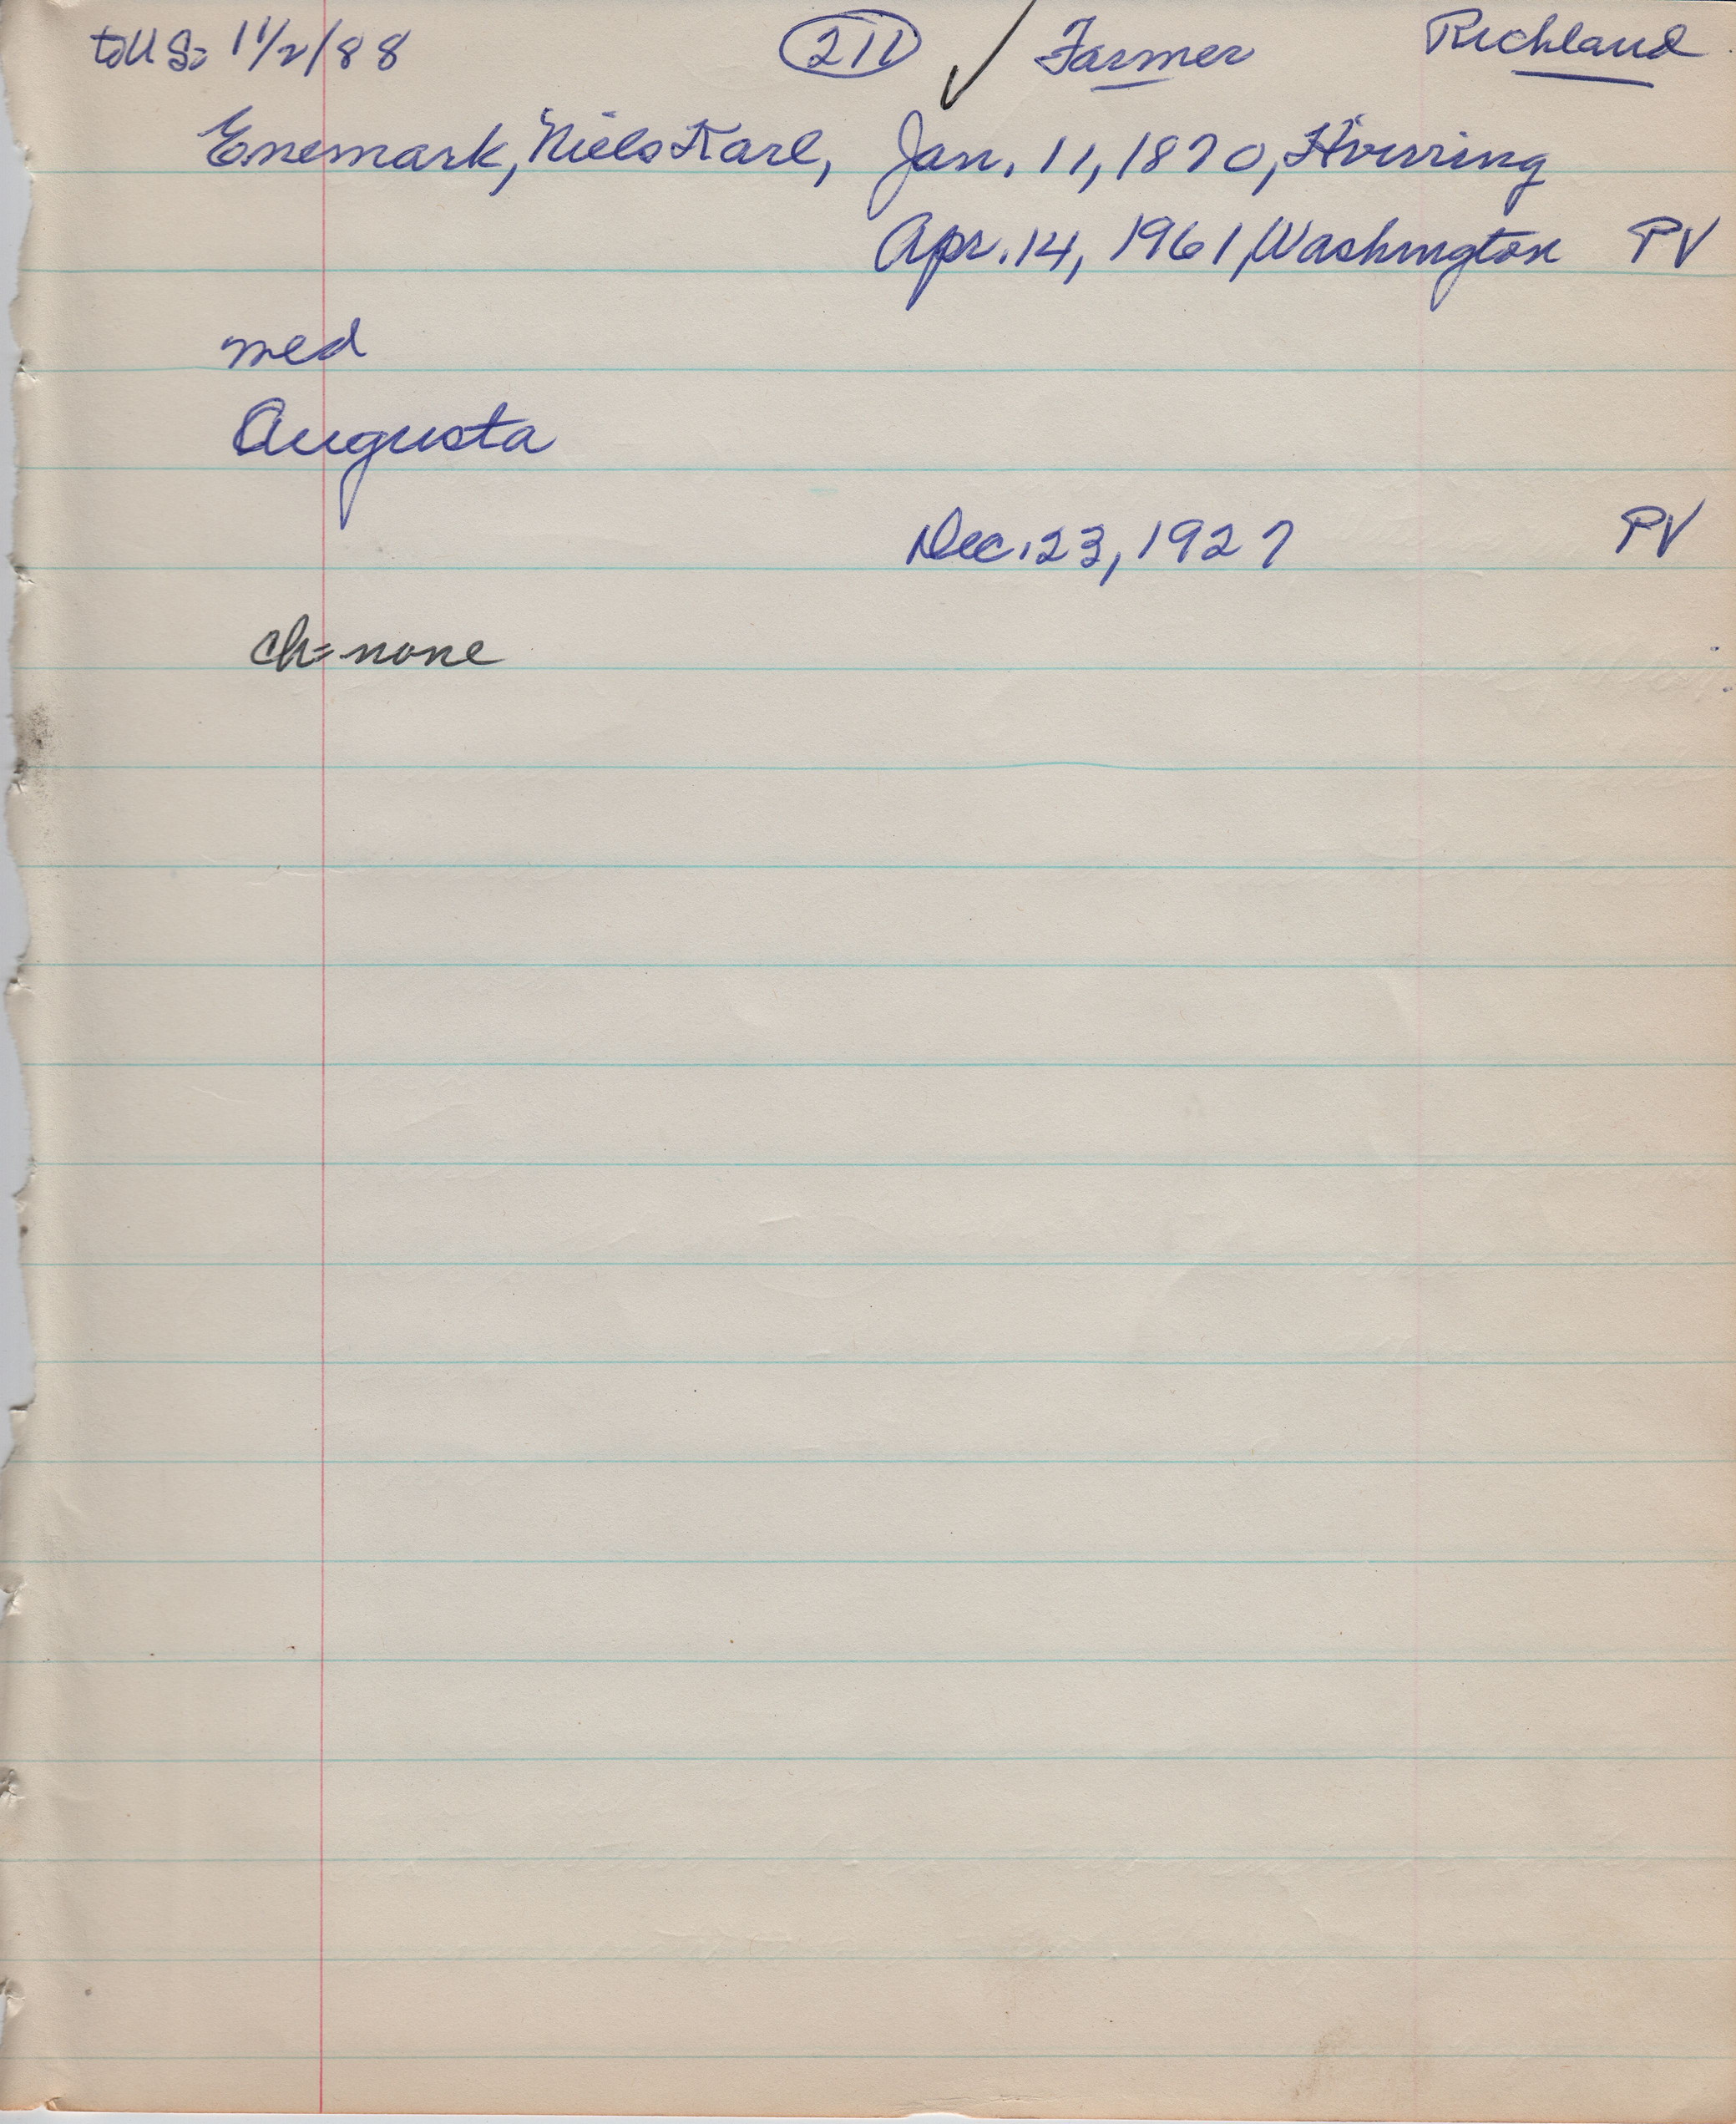 to U.S. 11/2/88 211 ✓ Farmer Richland
Enemark, Niels Karl, Jan. 11, 1870, Hivrring
Apr. 14, 1961, Washington PV
med
Augusta
Dec. 23, 1927 PV
ch = none